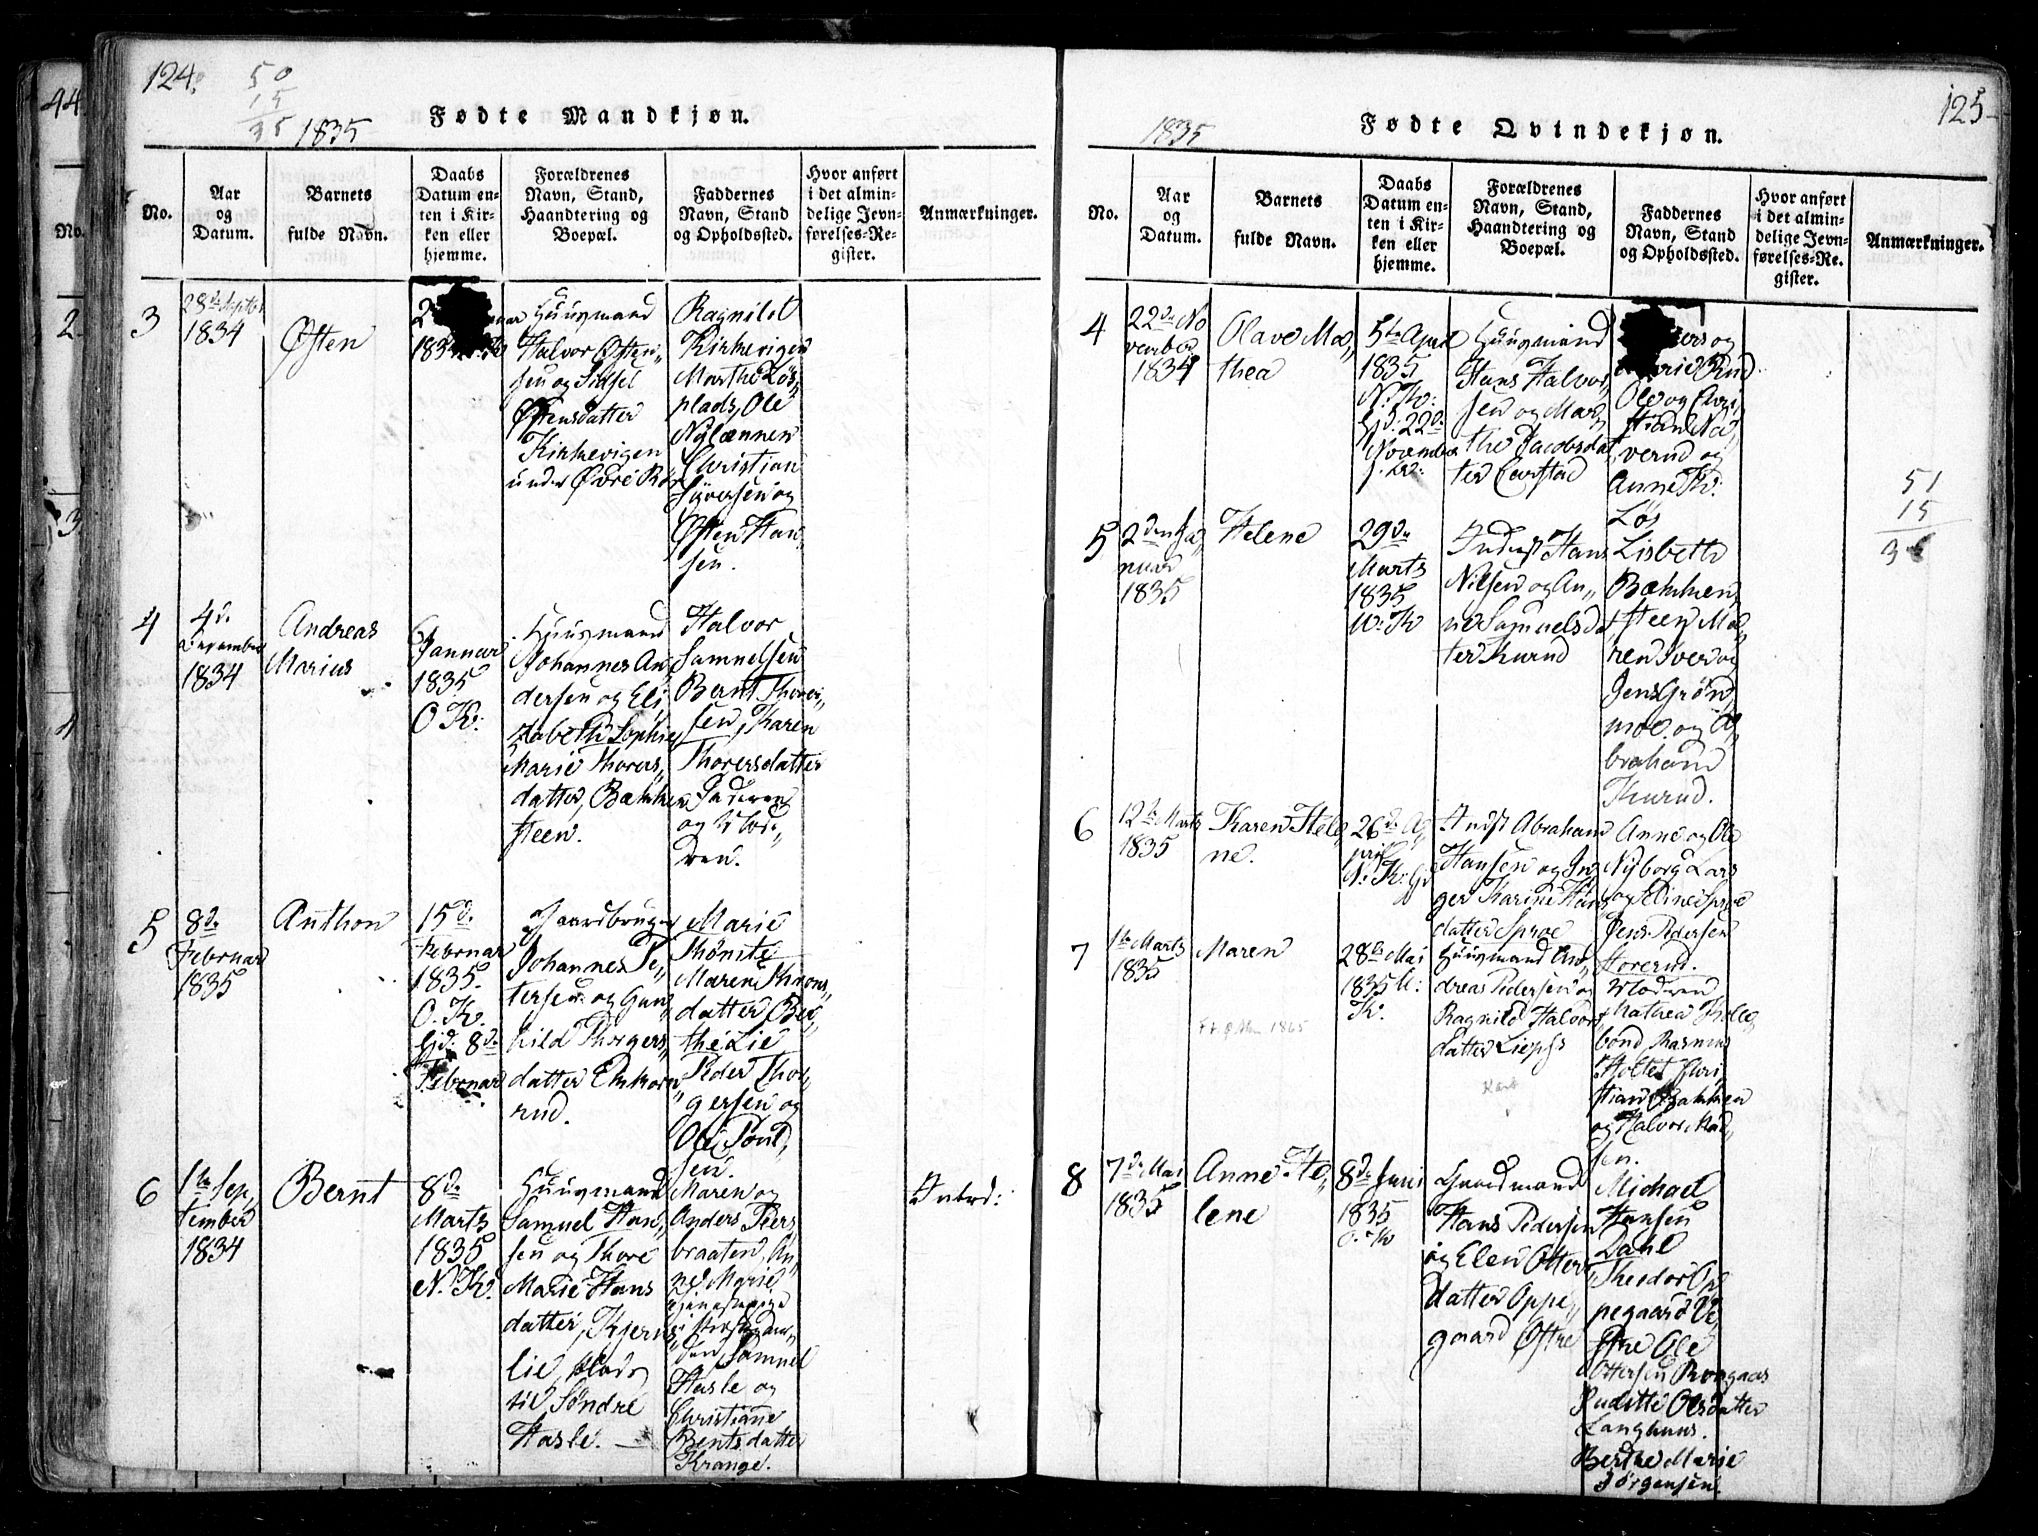 124.
50
15
35
1835
Fødte Mandkjøn.
No.
Aar
og
Datum.
Barnets
fulde Navn.
Daabs
Datum en-
ten i Kir-
ken eller
hjemme.
Forældrenes
Navn, Stand,
Haandtering og
Boepæl.
Faddernes
Navn, Stand
og Opholdssted.
Hvor anført
i det almin-
delige Jevn-
førelses-Re-
gister.
Anmærkninger.
3
28de Septbr
1834
Østen
Huusmand
Halvor Østen„
sen og Sidsel
Østensdatter
Kirkevigen
under Øvre
Ragnild
Kirkevigen
Marthe Løs„
plads, Ole
Nylænnen
Christian
Syversen og
Østen Han„
sen.
4
4d.
December
1834
Andreas
Marius
6
Januar
1835
O. K.
Huusmand
Johannes An„
dersen og Eli„
zabeth Sophie
Marie Thorers„
datter, Bækken
steen.
Halvor
Samuelsen
Bernt Thorer„
sen, Karen
Thorersdatter
Faderen
og Mode„
ren.
5
8d.
Februar
1835
Anthon
15d.
Februar
1835.
O. K.
hjd. 8d.
Februar
Gaardbruger
Johannes Pe„
tersen og Gun„
hild Thorgers„
datter Ekkorn„
rud.
Marie
Maren Throns„
datter Ber„
the Lie
Peder Thor„
gersen og
Ole Poul„
sen.
6
1te Sep„
tember
1834
Bernt
8d.
Marts
1835
N. K.
Huusmand
Samuel Han„
sen og Thore
Marie Hans
datter, Kjerns„
lie, plads
til Søndre
Hasle.
Maren og
Anders Peers
braaten, An„
ne Marie
Samuel
Hasle og
Christianne
Bentsdatter
Krange.
Introd:
125
1835
Fødte Qvindekjøn.
No.
Aar
og
Datum.
Barnets
fulde Navn.
Daabs
Datum en-
ten i Kir-
ken eller
hjemme.
Forældrenes
Navn, Stand,
Haandtering og
Boepæl.
Faddernes
Navn, Stand
og Opholdssted.
Hvor anført
i det almin-
delige Jevn-
førelses-Re-
gister.
Anmærkninger.
4
22de No
vember
1834
Olave Ma„
thea
5te April
1835
N. K.
hjd. 22d.
November
Huusmand
Hans Halvor„
sen og Mar„
the Jacobsdat„
ter
og
Marie Rud
Ole og Chri„
verud og
Anne K.
Løs
51
15
3
5
2den Ja„
nuar
1835
Helene
29de
Marts
1835
N. K.
Inderst Hans
Nilsen og An„
ne Samuelsdat
ter Kurud
Lisbeth
Bækken„
steen Ma„
ren Iver og
Jens Grøn„
moe og A„
braham
Kurud.
6
12te Marts
1835
Karen Hele„
ne.
26d. A„
pril
N. K.
Indst Abraham
Hansen og In„
ger Karine Hans
datter Sproe
Anne og Ole
Nyborg Lars
og Eline Sproe
Jens Pedersen
7
1te Marts
1835
Maren
28de Mai
1835 N.
K.
Huusmand An„
dreas Pedersen og
Ragnild Halvors„
datter
Moderen
Mathea
bond Rasmus
Holtet Chri„
stian Bakken
og Halvor Mad„
sen.
8
7d. Mai
1835
Anne He„
lene
8d. Juni
1835
O. K.
Gaardmand
Hans Pedersen
og Elen Otters
datter Oppe„
gaard Østre
Michael
Hansen
Dahl
Theodor Op„
pegaard Ve„
stre Ole
Ottersen
Juditte Olsdatter
Langhuus.
Berthe Marie
Jørgensen.